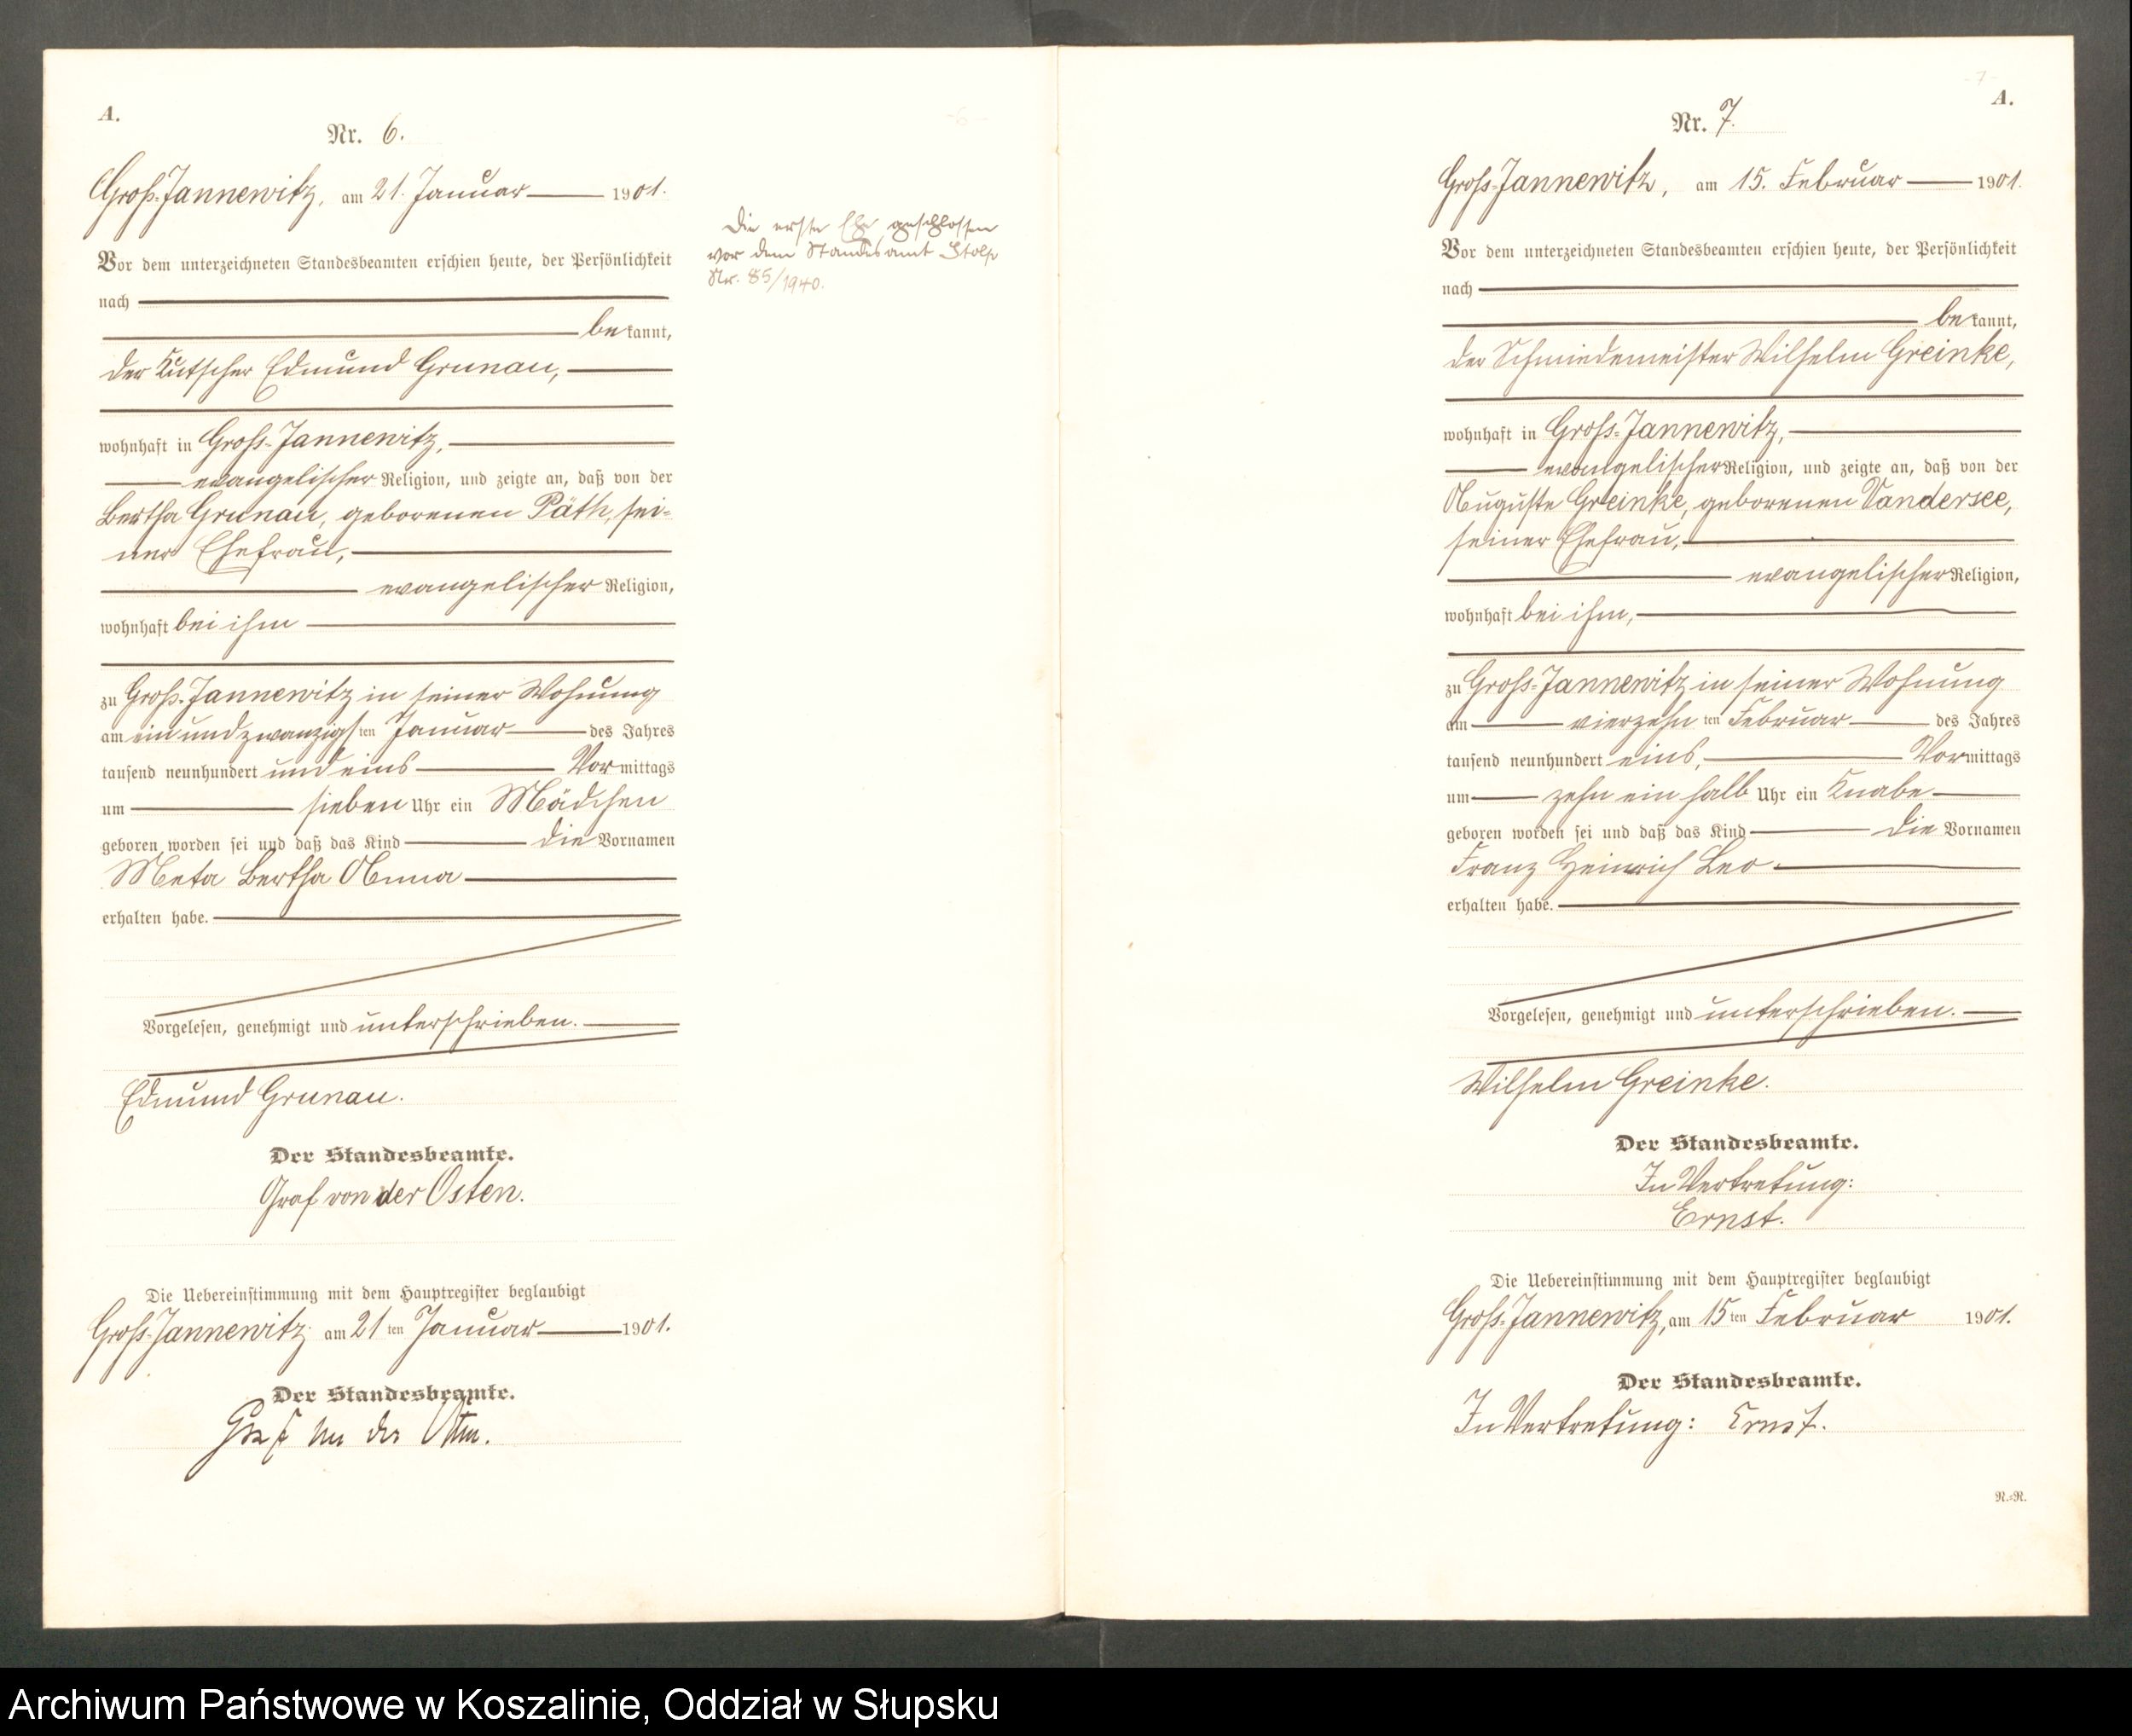 A.
Nr. 6.
Groß-Jannewitz, am 21. Januar 1901.
Vor dem unterzeichneten Standesbeamten erschien heute, der Persönlichkeit
nach
bekannt,
der Kutscher Edmund Grunau,
wohnhaft in Groß-Jannewitz,
evangelischer Religion, und zeigte an, daß von der
Bertha Grunau, geborenen Päth, sei-
ner Ehefrau,
evangelischer Religion,
wohnhaft bei ihm
zu Groß-Jannewitz in seiner Wohnung
am einundzwanzigsten Januar des Jahres
tausend neunhundert und eins Vormittags
um sieben Uhr ein Mädchen
geboren worden sei und daß das Kind die Vornamen
Meta Bertha Anna
erhalten habe.
Vorgelesen, genehmigt und unterschrieben.
Edmund Grunau.
Der Standesbeamte.
Graf von der Osten.
Die Uebereinstimmung mit dem Hauptregister beglaubigt
Groß-Jannewitz am 21 ten Januar 1901.
Der Standesbeamte.
Graf von der Osten.
-6-
Die erste Ehe geschlossen
vor dem Standesamt Stolp
Nr. 85/1940.
-7-
A.
Nr. 7.
Groß-Jannewitz, am 15. Februar 1901.
Vor dem unterzeichneten Standesbeamten erschien heute, der Persönlichkeit
nach
bekannt,
der Schmiedemeister Wilhelm Greinke,
wohnhaft in Groß-Jannewitz,
evangelischer Religion, und zeigte an, daß von der
Auguste Greinke, geborenen Vandersee,
seiner Ehefrau,
evangelischer Religion,
wohnhaft bei ihm,
zu Groß-Jannewitz in seiner Wohnung
am vierzehn ten Februar des Jahres
tausend neunhundert eins, Vormittags
um zehn ein halb Uhr ein Knabe
geboren worden sei und daß das Kind die Vornamen
Franz Heinrich Leo
erhalten habe.
Vorgelesen, genehmigt und unterschrieben.
Wilhelm Greinke.
Der Standesbeamte.
In Vertretung:
Ernst.
Die Uebereinstimmung mit dem Hauptregister beglaubigt
Groß-Jannewitz, am 15 ten Februar 1901.
Der Standesbeamte.
In Vertretung: Ernst.
R.=R.
Archiwum Państwowe w Koszalinie, Oddział w Słupsku